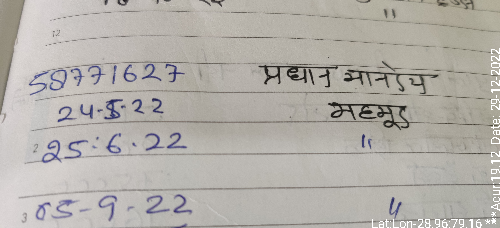 "
12
58771627 प्रधान मानदेय
24-5-22 महमूद
2 25:6.22 "
3 05-9-22 "
Acur19.12 Date: 29-12-2022
Lat:Lon-28.96:79.16